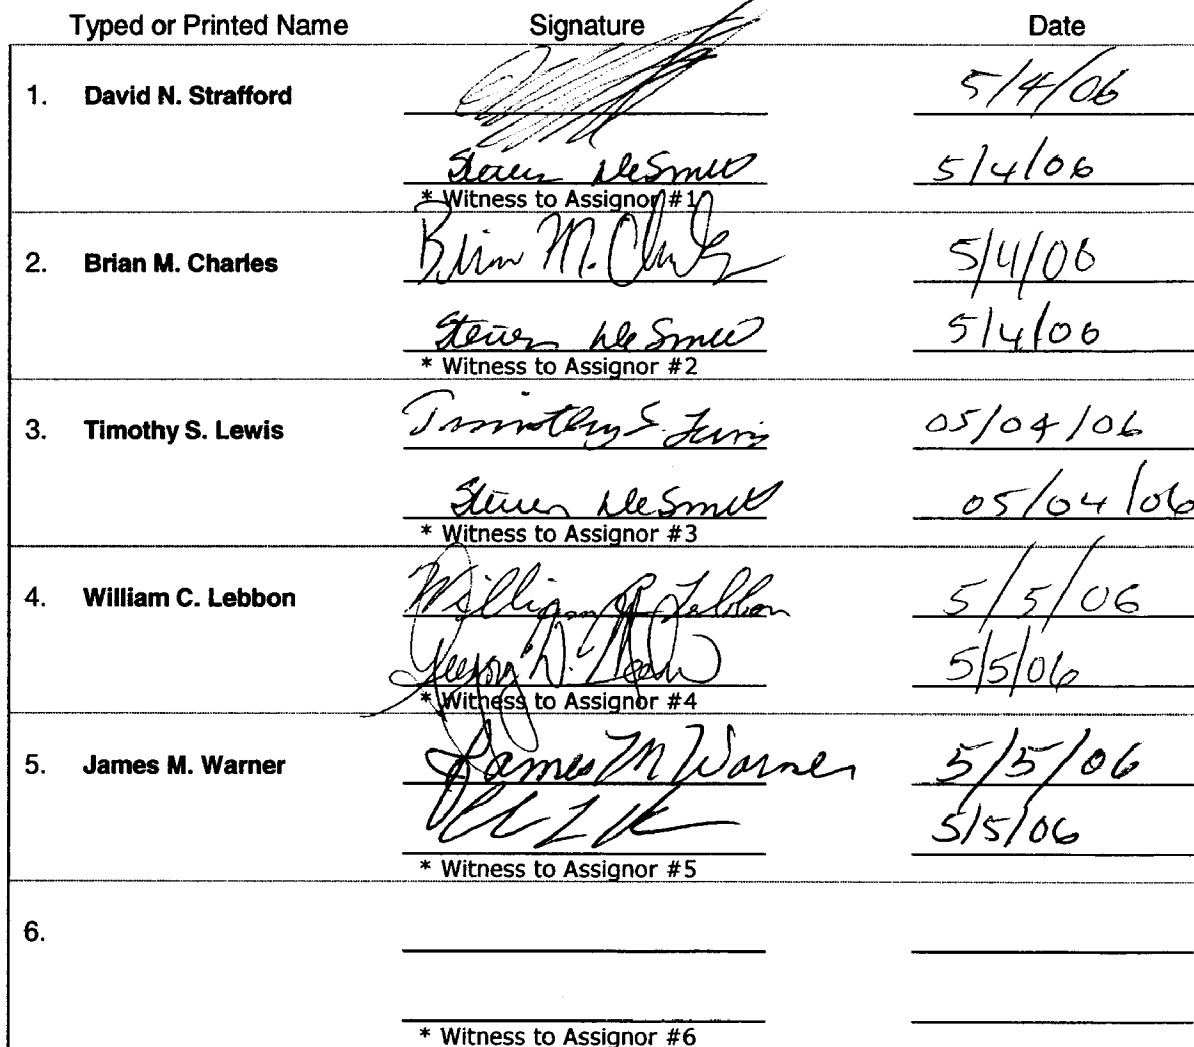 Typed or Printed Name Signature Date
1. David N. Strafford 5/4/06
Steven DeSmet 5/4/06
* Witness to Assignor #1
2. Brian M. Charles Brian M. Charles 5/4/06
Steven DeSmet 5/4/06
* Witness to Assignor #2
3. Timothy S. Lewis Timothy S. Lewis 05/04/06
Steven DeSmet 05/04/06
* Witness to Assignor #3
4. William C. Lebbon William C. Lebbon 5/5/06
5/5/06
* Witness to Assignor #4
5. James M. Warner James M Warner 5/5/06
5/5/06
* Witness to Assignor #5
6.
* Witness to Assignor #6